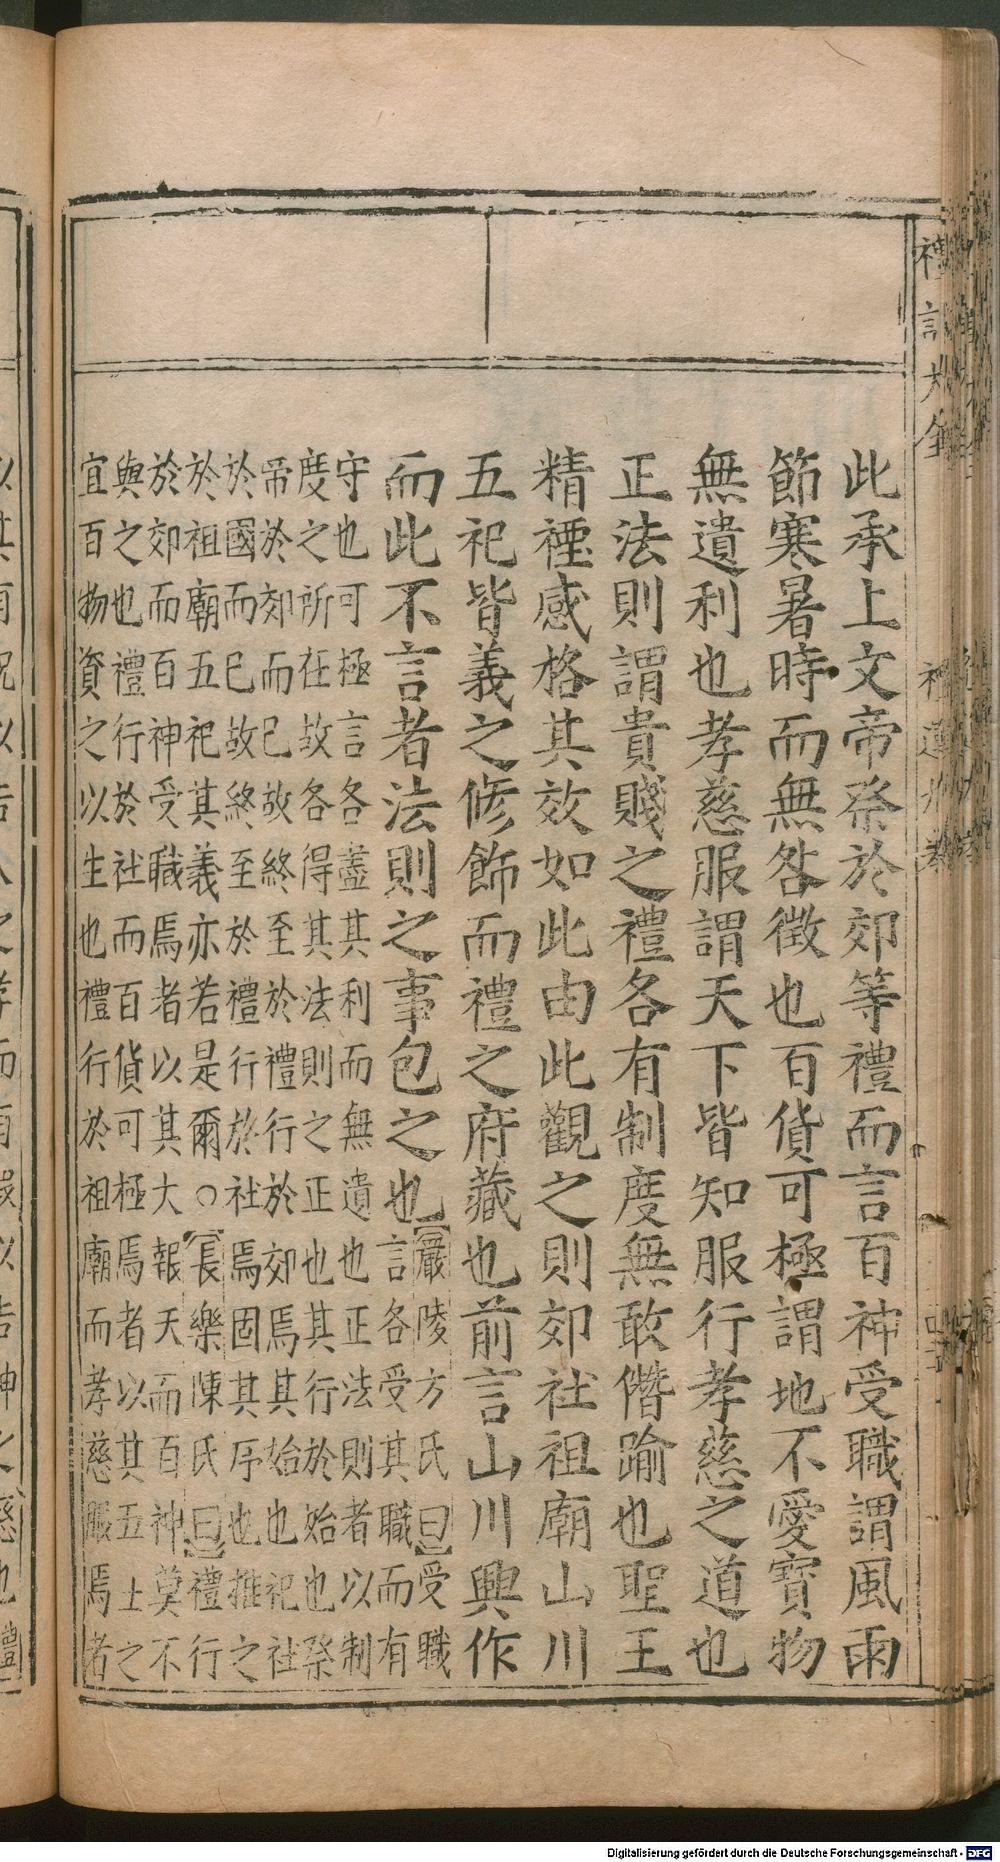 此承上文帝祭於郊等禮而言百神受職謂風雨
節寒暑時而無咎徵也百貨可極謂地不愛寶物
無遺利也孝慈服謂天下皆知服行孝慈之道也
正法則謂貴賤之禮各有制度無敢僭踰也聖王
精禋感格其效如此由此觀之則郊社祖廟山川
五祀皆義之修飾而禮之府藏也前言山川興作
而此不言者法則之事包之也
嚴陵方氏曰受職
言各受其職而有
守也可極言各盡其利而無遺也正法則者以制
度之所在故各得其法則之正也其行於始也祭
帝於郊而已故終至於禮行於郊焉其始也祀社
於國而已故終至於禮行於社焉固其序也推之
於祖廟五祀其義亦若是爾○長樂陳氏曰禮行
於郊而百神受職焉者以其大報天而百神莫不
與之也禮行於社而百貨可極焉者以其五土之
宜百物資之以生也禮行於祖廟而孝慈服焉者
禮記大全
Digitalisierung gefördert durch die Deutsche Forschungsgemeinschaft - DFG